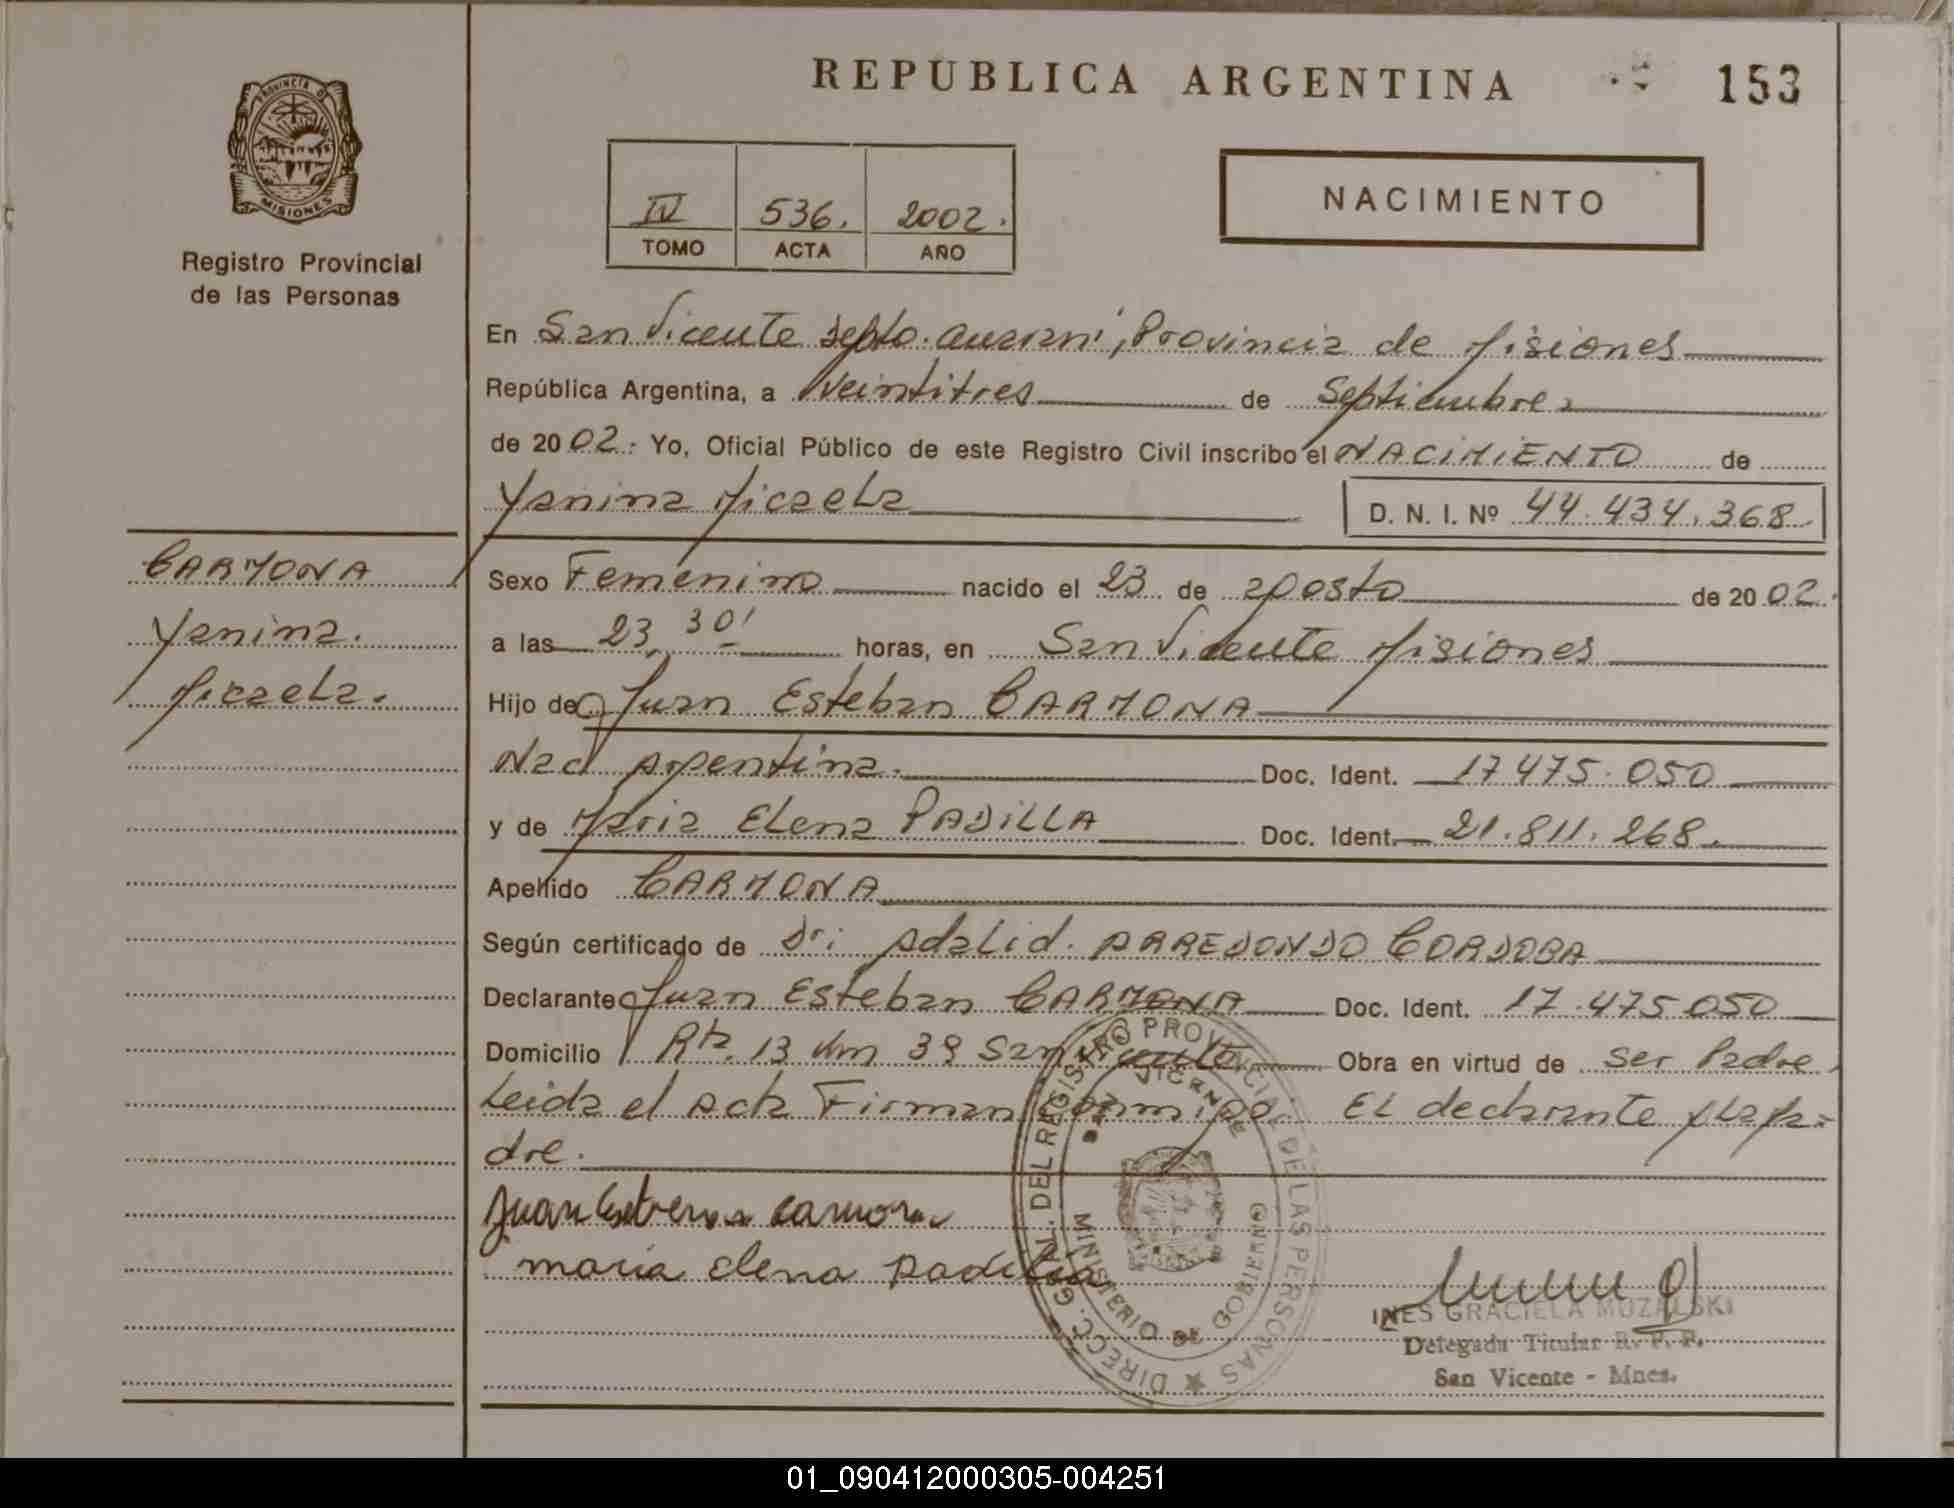 REPUBLICA ARGENTINA
153
PROVINCIA DE
MISIONES
Registro Provincial
de las Personas
IV 536. 2002.
TOMO ACTA AÑO
NACIMIENTO
En San Vicente Depto. Guarani, Provincia de Misiones
República Argentina, a Veintitres de Septiembre
de 2002. Yo, Oficial Público de este Registro Civil inscribo el NACIMIENTO de
Yanina Micaela D. N. I. Nº 44.434.368
CARMONA
Yanina
Micaela.
Sexo Femenino nacido el 23 de agosto de 2002.
a las 23,30' horas, en San Vicente Misiones
Hijo de Juan Esteban CARMONA
Nad argentina. Doc. Ident. 17475.050
y de Maria Elena PADILLA Doc. Ident. 21.811.268.
Apellido CARMONA
Según certificado de Dr: Adalid. ARREDONDO CORDOBA
Declarante Juan Esteban CARMONA Doc. Ident. 17.475050
Domicilio Rta. 13 km 39 San Vicente Obra en virtud de ser Padre
Leida el acta Firman conmigo. El declarante y la pa-
dre.
Juan Carmona
maria elena padilla
DIRECC. GRAL. DEL REGISTRO PROVINCIAL DE LAS PERSONAS
MINISTERIO DE GOBIERNO
VICENTE
INES GRACIELA MUZALSKI
Delegada Titular R. P. P.
San Vicente - Mnes.
01_090412000305-004251